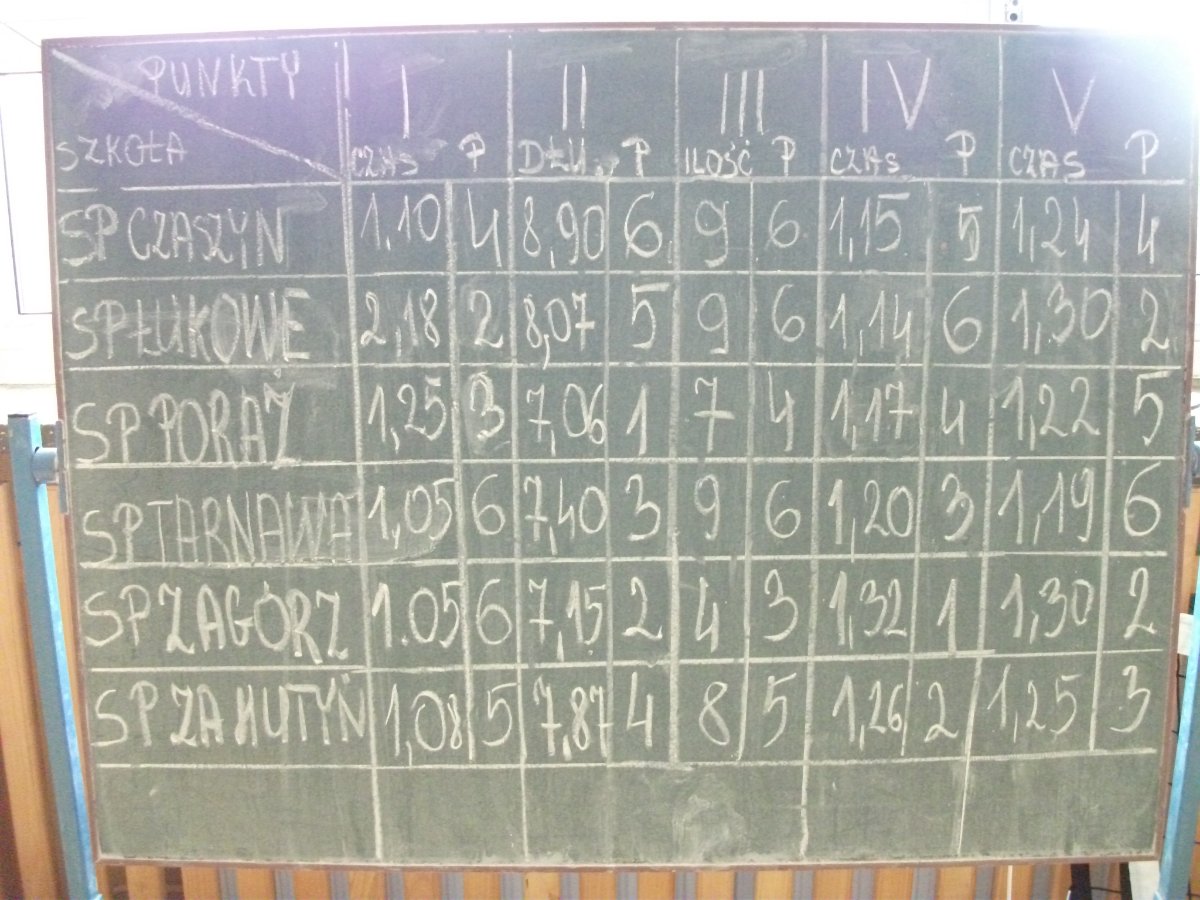 PUNKTY I II III IV V
SZKOŁA CZAS P DŁU. P ILOŚĆ P CZAS P CZAS P
SP CZASZYN 1,10 4 8,90 6 9 6 1,15 5 1,24 4
SP ŁUKOWE 2,18 2 8,07 5 9 6 1,14 6 1,30 2
SP PORAŻ 1,25 3 7,06 1 7 4 1,17 4 1,22 5
SP TARNAWA 1,05 6 7,40 3 9 6 1,20 3 1,19 6
SP ZAGÓRZ 1.05 6 7,15 2 4 3 1,32 1 1,30 2
SP ZAHUTYŃ 1,08 5 7,87 4 8 5 1,26 2 1,25 3